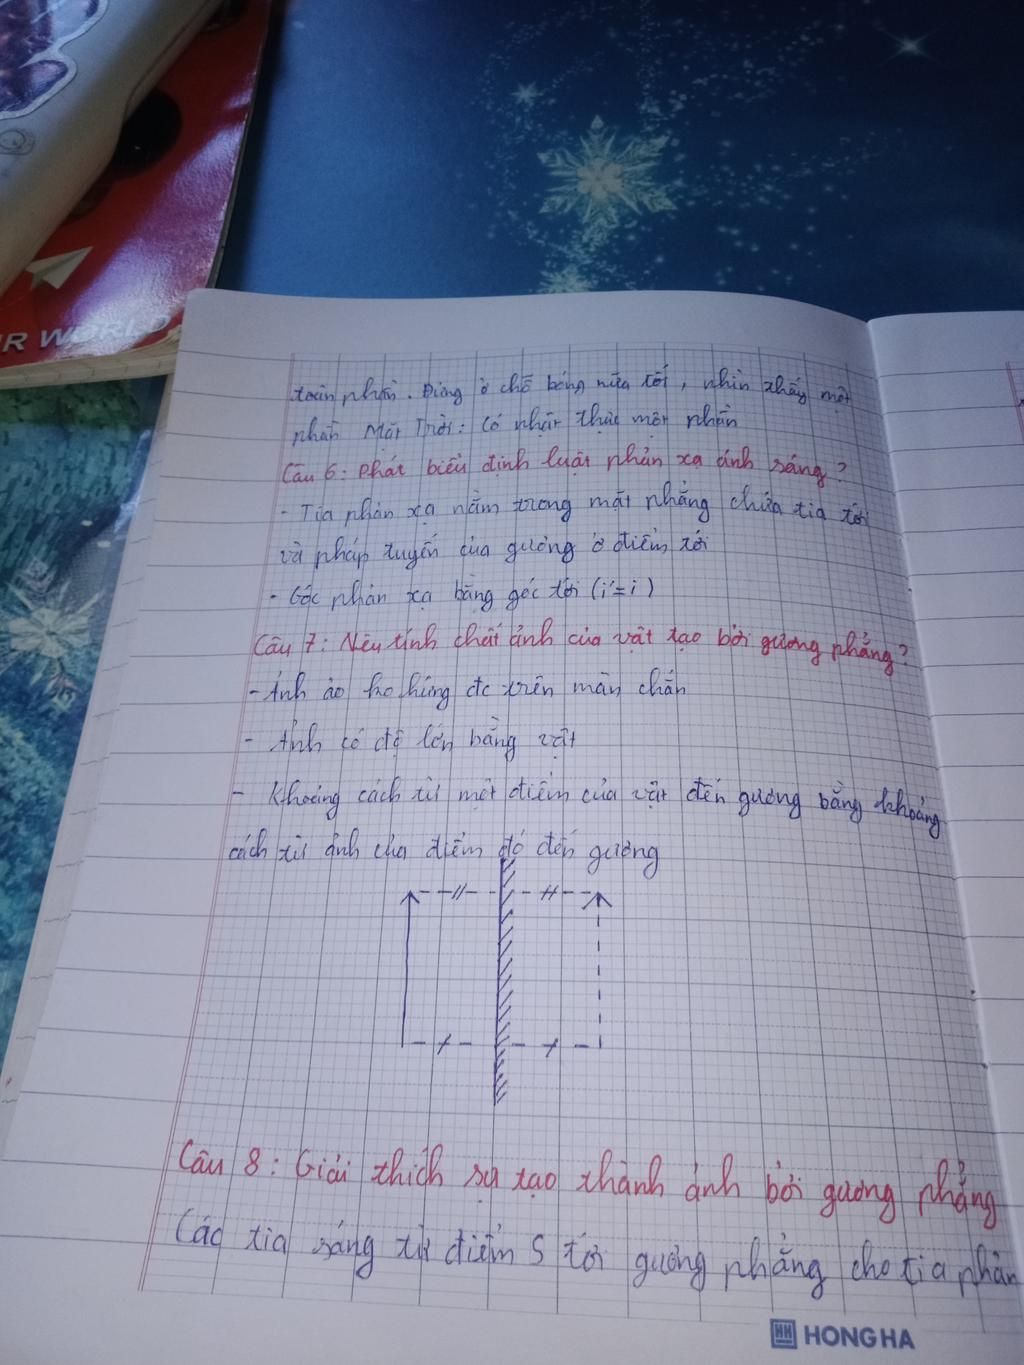 R WORLD
toàn phần. Đứng ở chỗ bóng nửa tối, nhìn thấy một
phần Mặt Trời: Có nhật thực một phần
Câu 6: Phát biểu định luật phản xạ ánh sáng?
- Tia phản xạ nằm trong mặt phẳng chứa tia tới
và pháp tuyến của gương ở điểm tới
- Góc phản xạ bằng góc tới (i'=i)
Câu 7: Nêu tính chất ảnh của vật tạo bởi gương phẳng?
- Ảnh ảo ko hứng đc trên màn chắn
- Ảnh có độ lớn bằng vật
- Khoảng cách từ một điểm của vật đến gương bằng khoảng
cách từ ảnh của điểm đó đến gương
Câu 8: Giải thích sự tạo thành ảnh bởi gương phẳng
Các tia sáng từ điểm S tới gương phẳng cho tia phản
HH HONG HA